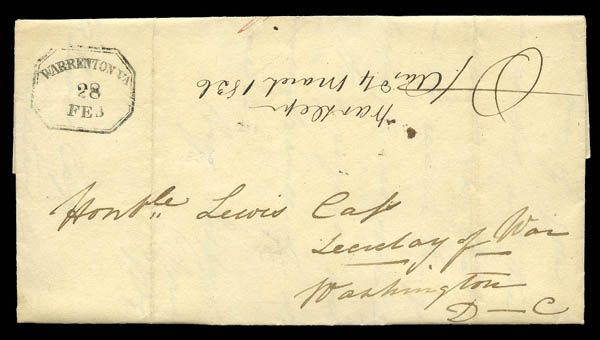 WARRENTON VA
28
FEB
4 March 1836
Honble Lewis Cass
Secretay of War
Washington
D - C